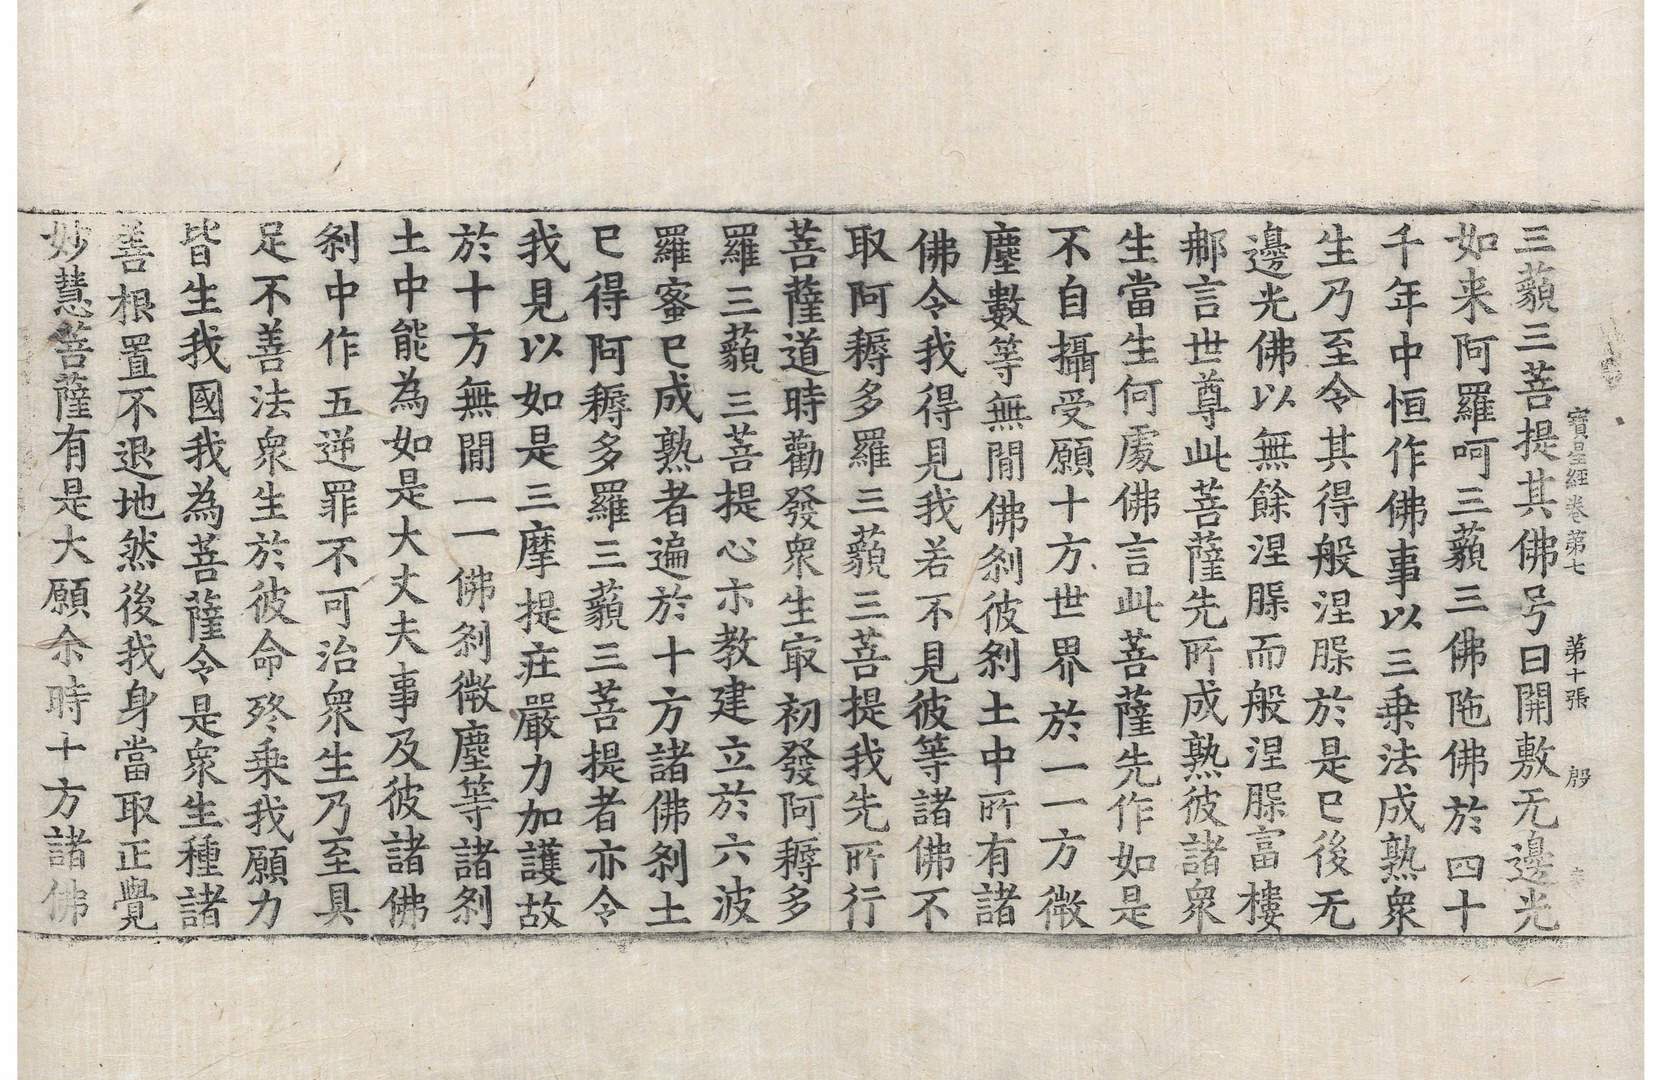 寶星經卷第七　第十張　殷
三藐三菩提其佛号曰開敷无邊光
如来阿羅呵三藐三佛陁佛於四十
千年中恒作佛事以三乗法成熟衆
生乃至令其得般涅槃於是已後无
邊光佛以無餘涅槃而般涅槃富樓
那言世尊此菩薩先所成熟彼諸衆
生當生何處佛言此菩薩先作如是
不自攝受願十方世界於一一方微
塵數等無閒佛刹彼刹土中所有諸
佛令我得見我若不見彼等諸佛不
取阿耨多羅三藐三菩提我先所行
菩薩道時勸發衆生㝡初發阿耨多
羅三藐三菩提心亦教建立於六波
羅蜜已成熟者遍於十方諸佛刹土
已得阿耨多羅三藐三菩提者亦令
我見以如是三摩提莊嚴力加護故
於十方無閒一一佛刹微塵等諸刹
土中能為如是大丈夫事及彼諸佛
刹中作五逆罪不可治衆生乃至具
足不善法衆生於彼命終乗我願力
皆生我國我為菩薩令是衆生種諸
善根置不退地然後我身當取正覺
妙慧菩薩有是大願尒時十方諸佛